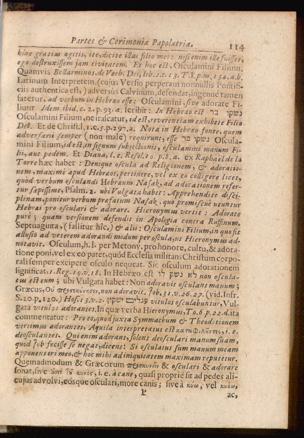 Partes & Cerimoniæ Papolatriæ. 114
hinc gratiam agitis, ite, dicite illas filio meo: nisi enim ille fuisset,
ego destruxissem jam civitatem. Et hoc est, Osculamini Filium.
Quamvis Bellarminus de Verb. Dei,
Latinum Interpretem, (cujus Versio perperam nonnullis Pontifi-
ciis authentica est,) adversus Calvinum, defendat, ingenuè tamen
fatetur, ad verbum in Hebræo esse: Osculamini, sive adorate Fi-
lium. Idem scribit: In Hebræo est נשקו בר
Osculamini Filium, ne irascatur, id est, reverentiam exhibete Filio
Dei. Et de Christ. Nota in Hebræo fonte, quem
adversarii semper (non male) requirunt, esse נשקו בר Oscula-
mini Filium, id est, in signum subjectionis, osculamini manum Fi-
lii, aut pedem. Et Dana, ex Raphaël de la
Torre hæc habet: Denique oscula ad Religionem, & adoratio-
nem, maximè apud Hebræos, pertinere, vel ex eo colligere licet,
quod verbum osculandi Hebræum Nasak, ad adorationem refer-
tur sæpissime, Psalm. 2. ubi Vulgata habet: Apprehendite disci-
plinam, ponitur verbum præfatum Nasak, quo promiscuè utuntur
Hebræi pro osculari & adorare. Hieronymus vertit: Adorate
purè; quam versionem defendit in Apologia contra Ruffinum.
Septuaginta, (fallitur hîc,) & alii: Osculamini Filium, in quo sit
allusio ad veterem adorandi modum per oscula, ut Hieronymus ad-
notavit. Osculum, h. l. per Metony. pro honore, cultu, & adora-
tione poni, vel ex eo patet, quod Ecclesia militans Christum corpo-
rali semper excipere osculo nequeat. Sic osculum adorationem
significat. 1. Reg. 19. v. 18. In Hebræo est לא נשק לו non oscula-
tum est eum; ubi Vulgata habet: Non adoravit osculans manum;
Græcus, οὐ προσεκύνησεν, non adoravit. Job, 31. v. 26. 27. (vid. Inf.
S. 20. p. 120.) Hos. 13. v. 2. עגלים ישקון vitulos osculabuntur, Vul-
gata vitulos adorantes. In quæ verba Hieronymus, To. 6. p. 22. d. ita
commentatur: Pro eo, quod juxta Symmachum & Theodotionem
vertimus adorantes, Aquila interpretatus est καταφιλοῦντες, i. e.
deosculantes. Qui enim adorant, solent deosculari manum suam,
quod Job fecisse se negat, dicens: Si osculatus sum manum meam
apponens ori meo, & hoc mihi ad iniquitatem maximam reputetur.
Quemadmodum & Græcorum προσκυνεῖν & osculari & adorare
sonat, sive à κύνις, i. e. à cane, quasi proprie sit ad pedes ali-
cujus advolvi, eosque osculari, more canis; sive à κύω, vel κυέω,
P
ac,